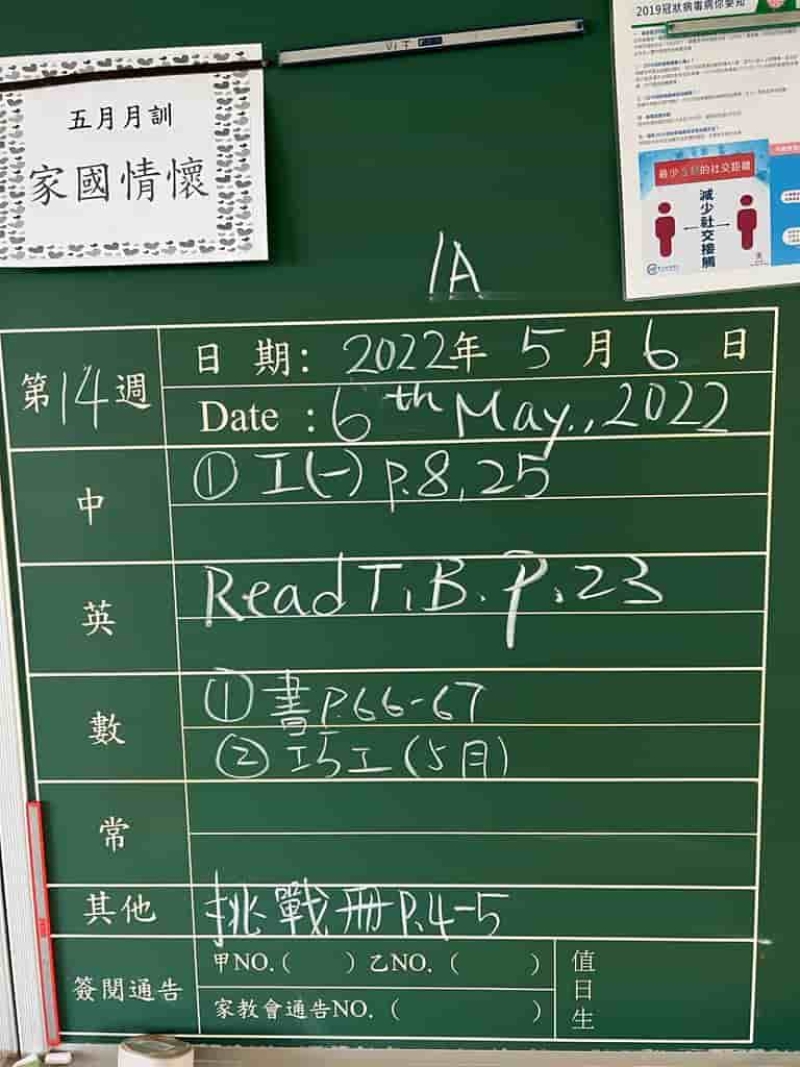 2019冠狀病毒病你要知
五月月訓
家國情懷
最少 的社交距離
減少社交接觸
1A
第14週
日 期: 2022年 5 月 6 日
Date : 6th May., 2022
中
① 工(一) P.8, 25
英
Read T.B. P.23
數
① 書 P.66-67
② 巧工 (5月)
常
其他
挑戰冊 P.4-5
簽閱通告
甲NO.( ) 乙NO. ( )
家教會通告NO. ( )
值日生